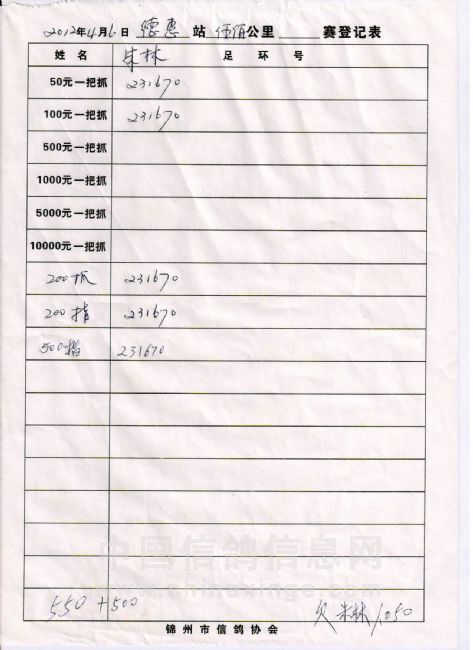 2012年4月6日 德惠 站 伍佰公里 赛登记表
姓名 朱林 足环号
50元一把抓 231670
100元一把抓 231670
500元一把抓
1000元一把抓
5000元一把抓
10000元一把抓
200抓 231670
200指 231670
500指 231670
中国信鸽信息网
www.chinaxinge.com
550+500 欠 朱林 1050
锦州市信鸽协会